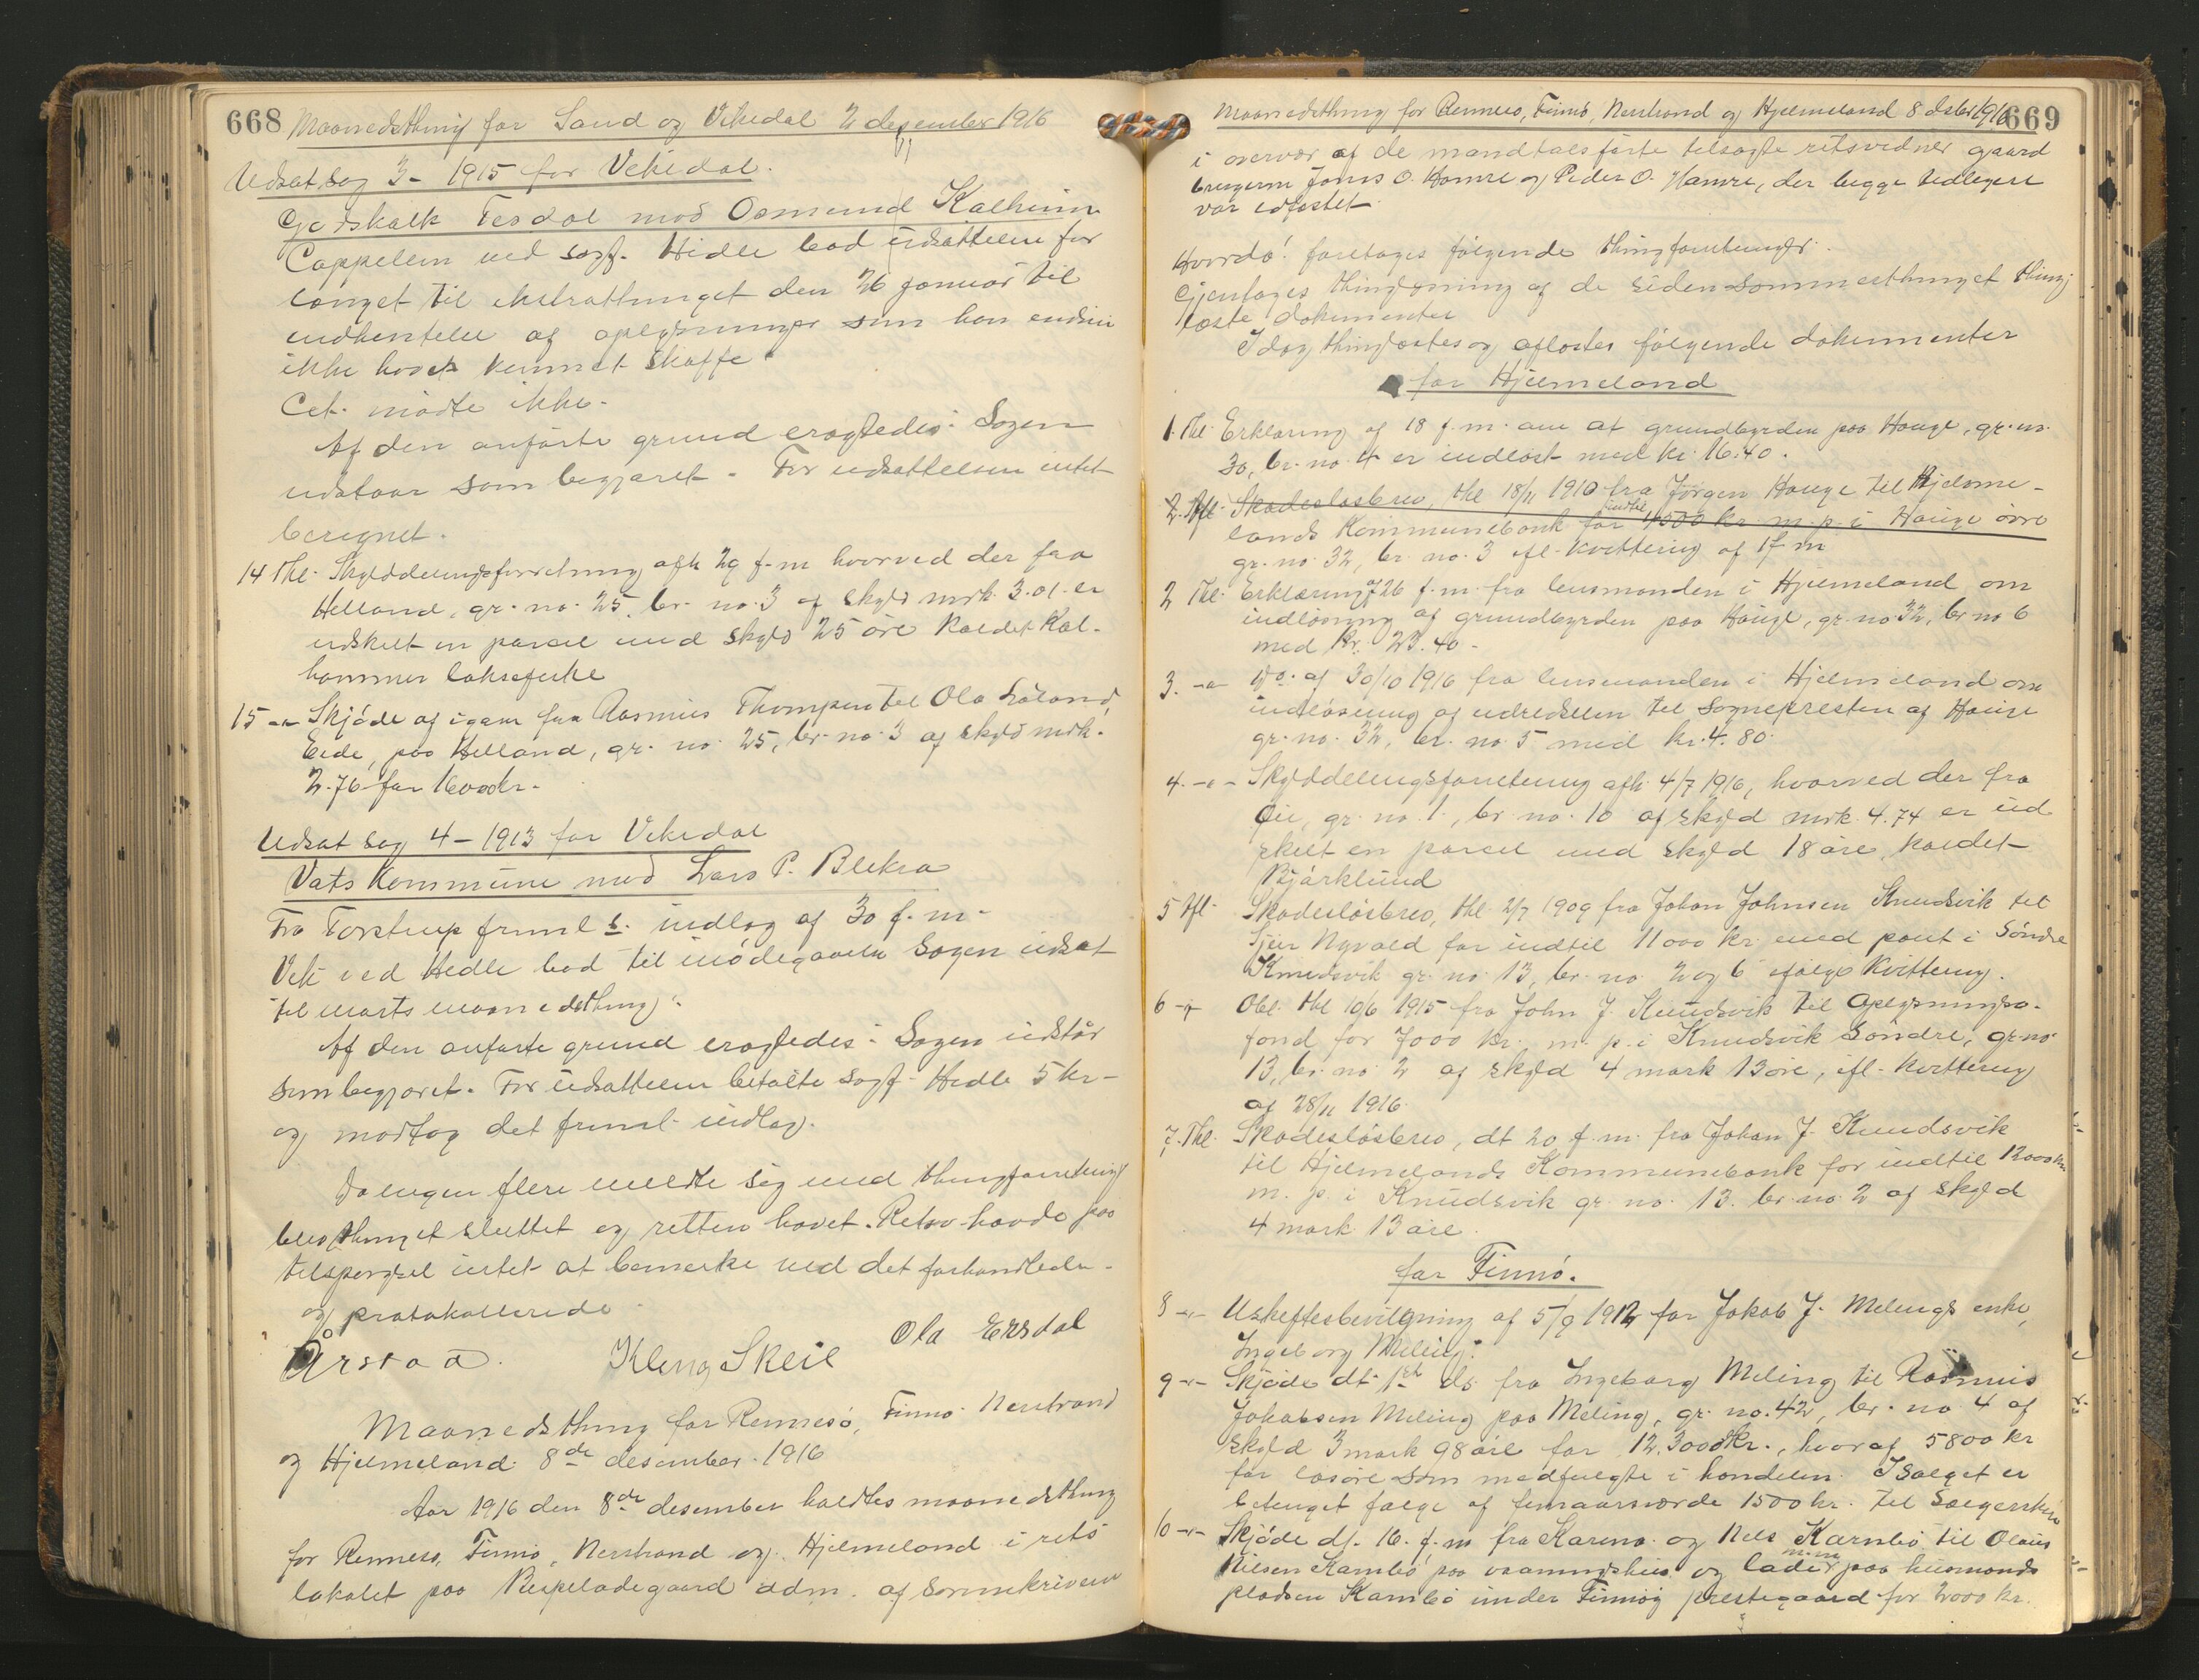 668 Maanedsthing for Sand og Vikedal 2 desember 1916
Udsat sag 3 - 1915 for Vikedal.
Godskalk Fesdal mod Osmund Kalheim
Cappelen ved sagf. Hidle bad udsættelse for
langet til ekstrathinget den 26 januar til
indhentelse af oplysninger som han endnu
ikke havde kunnet skaffe
Cit. mødte ikke.
Af den anførte grund eragtedes: Sagen
udstaar som begjæret. For udsættelsen intet
beregnet.
14 Thl. Skylddelingsforretning afh 29 f.m hvorved der fra
Helland, gr. no. 25, br. no. 3 af skyld mrk. 3.01 er
udskilt en parcel med skyld 25 øre kaldet Kal-
hammer laksefiske
15 -"- Skjøde af igaar fra Rasmus Thompsen til Ola Løland,
Eide, paa Helland, gr. no. 25, br. no. 3 af skyld mrk.
2.76 for 1600 kr.
Udsat sag 4 - 1913 for Vikedal
Vats kommune mod Lars P. Blikra
Fra Torstrup freml s. indlæg af 30 f.m.
Vik ved Hidle bad til imødegaaelse sagen udsat
til marts maanedsthing.
Af den anførte grund eragtedes: Sagen udstår
som begjæret. For udsættelsen betalte sagf. Hidle 5 kr.
og modtog det freml. indlæg.
Da ingen flere meldte sig med thingforretning
blev thinget sluttet og retten hævet. Retsv. havde paa
tilspørgsel intet at bemerke ved det forhandlede
og protokollerede
Årstad. Kleng Skeie Ola Ersdal
Maanedsthing for Rennesø, Finnø, Nerstrand
og Hjelmeland 8de desember 1916
Aar 1916 den 8de desember holdtes maanedsthing
for Rennesø, Finnø, Nerstrand og Hjelmeland i rets
lokalet paa Bispeladegaard adm. af sorenskriveren
Maanedsthing for Rennesø, Finnø, Nerstrand og Hjelmeland 8 dsbr 1916 669
i overvær af de mandtalsførte tilsagte retsvidner gaard
brugerne Jonas O. Hamre og Peder O. Hamre, der begge tidligere
var edfæstet.
Hvorda! foretages følgende thingforretninger:
Gjentages thinglæsning af de siden sommerthinget thing
læste dokumenter
Idag thinglæstes og aflæstes følgende dokumenter
for Hjelmeland
1. Thl. Erklæring af 18 f.m. om at grundbyrden paa Hauge, gr. no.
30, br. no. 4 er indløst med kr. 16.40.
2. Afl. Skadesløsbrev, thl 18/11 1910 fra Jørgen Hauge til Hjelme-
lands Kommunebank for indtil 4500 kr m. p. i Hauge øvre
gr. no. 32, br. no. 3 ifl. kvittering af 1 f m
2 Thl. Erklæring af 26 f. m. fra lensmanden i Hjelmeland om
indløsning af grundbyrden paa Hauge, gr. no 32, br no 6
med kr. 23.40.
3. -"- Do. af 30/10 1916 fra lensmanden i Hjelmeland om
indløsning af udredselen til sognepresten af Hauge
gr. no. 32, br. no. 5 med kr. 4.80.
4. -"- Skylddelingsforretning afh. 4/7 1916, hvorved der fra
Øie, gr. no. 1, br. no. 10 af skyld mrk. 4.74 er ud
skilt en parcel med skyld 18 øre, kaldet
Bjørklund
5 Afl. Skadesløsbrev, thl. 2/7 1909 fra Johan Johnsen Knudsvik til
Sjur Nyvold for indtil 11000 kr. med pant i Søndre
Knudsvik gr. no 13, br. no. 2 og 6 ifølge kvittering.
6 -"- Obl. thl 10/6 1915 fra John J. Knudsvik til Oplysningsv.
fond for 7000 kr. m. p. i Knudsvik Søndre, gr. no.
13, br. no. 2 af skyld 4 mark 13 øre, ifl. kvittering
af 28/11 1916.
7. Thl. Skadesløsbrev, dt 20 f. m. fra Johan J. Knudsvik
til Hjelmelands Kommunebank for indtil 12000 kr.
m. p. i Knudsvik gr. no. 13. br. no. 2 af skyld
4 mark 13 øre.
for Finnø.
8 -"- Uskiftesbevilgning af 5/9 1912 for Jakob J. Melings enke,
Ingeborg Meling.
9 -"- Skjøde dt. 1ste ds. fra Ingeborg Meling til Rasmus
Jakobsen Meling paa Meling, gr. no. 42, br. no 4 af
skyld 3 mark 98 øre for 12.300 kr., hvoraf 5800 kr
for løsøre som medfulgte i handelen. I salget er
betinget følge af femaarsværde 1500 kr. til sælgersken
10 -"- Skjøde dt. 16. f. m fra Karina og Nils Kambø til Olaus
Nilsen Kambø paa vaaningshus og lade m.m. paa husmands
pladsen Kambø under Finnøy prestegaard for 2000 kr.